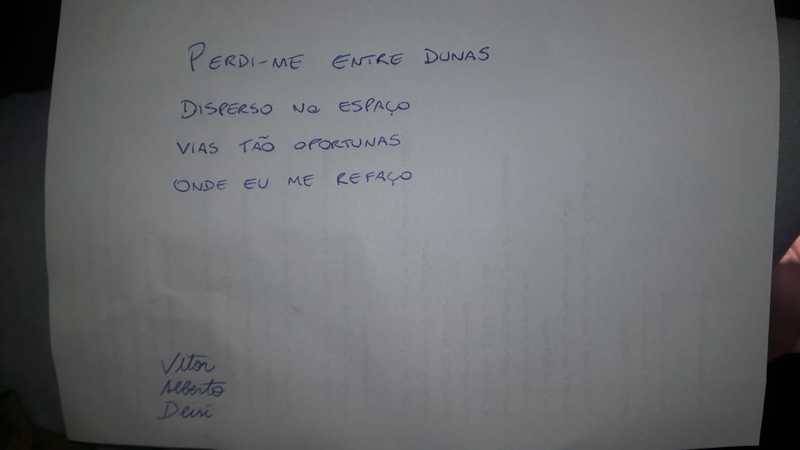 PERDI-ME ENTRE DUNAS
DISPERSO NO ESPAÇO
VIAS TÃO OPORTUNAS
ONDE EU ME REFAÇO
Vitor
Alberto
Deisi